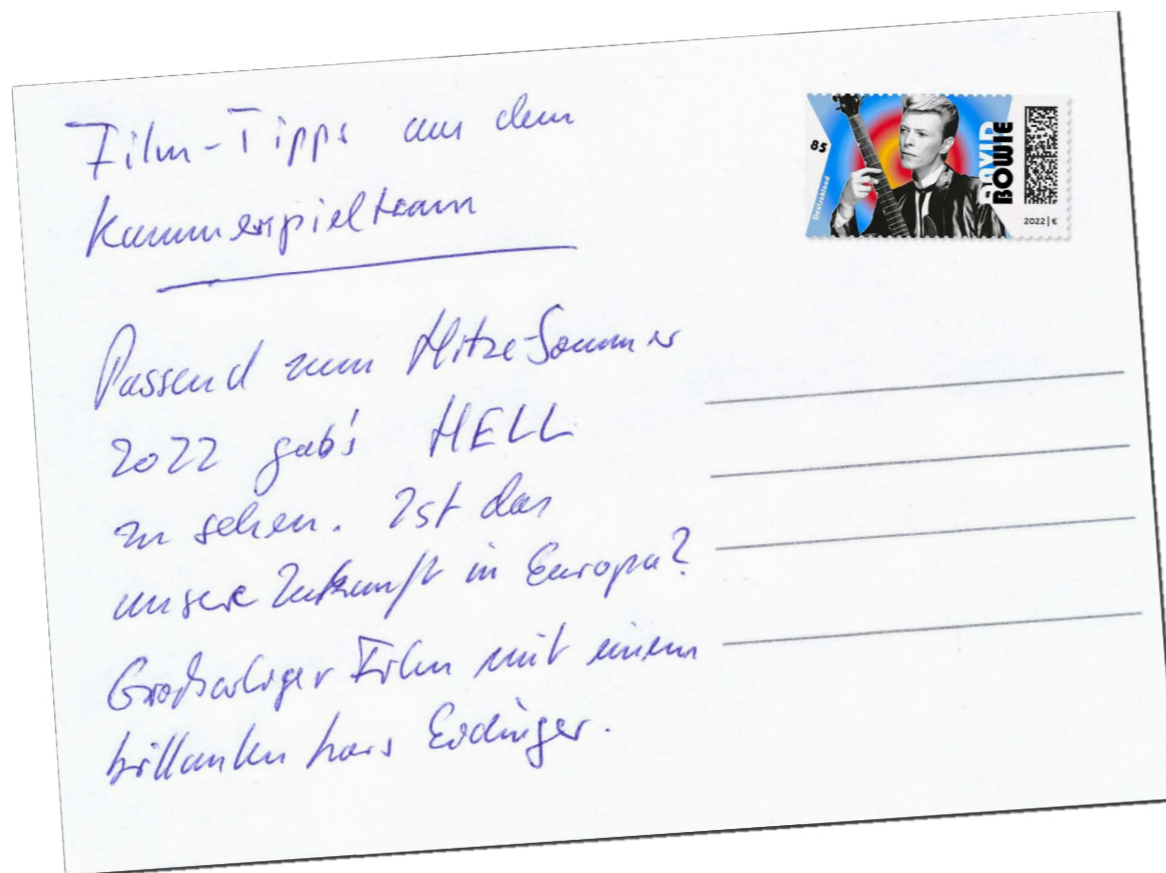 Film-Tipps aus dem
Kammerspielteam
Passend zum Hitze-Sommer
2022 gab's HELL
zu sehen. Ist das
unsere Zukunft in Europa?
Großartiger Film mit einem
brillanten Lars Eidinger.
85
Deutschland
DAVID
BOWIE
2022 | €